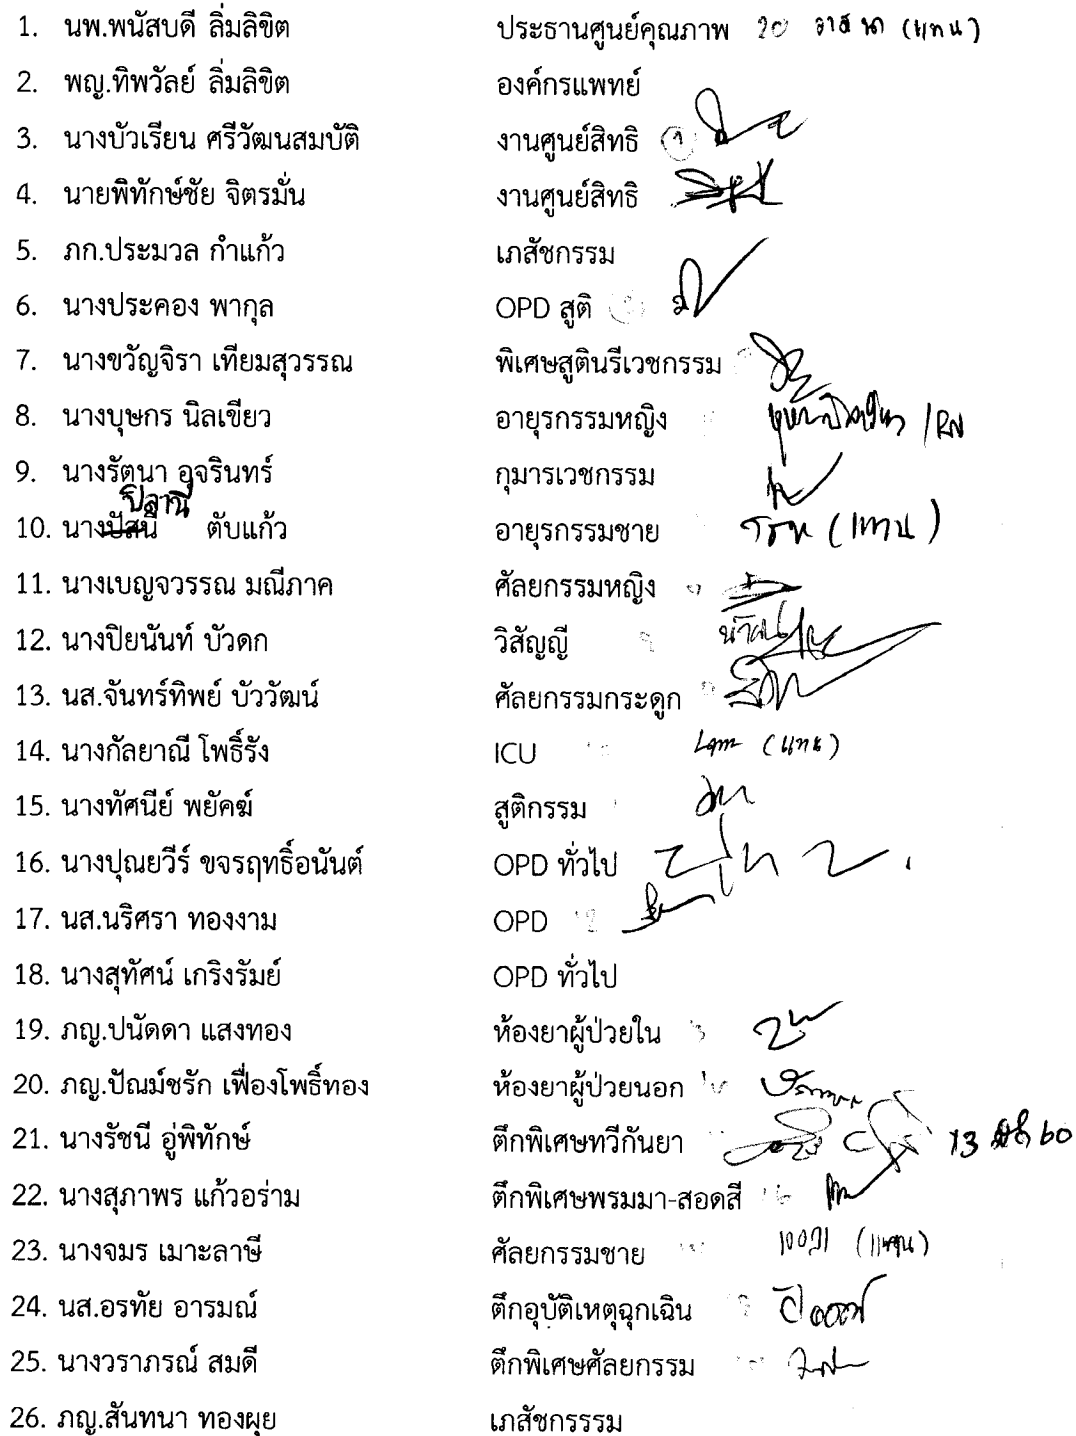 1. นพ.พนัสบดี ลิ่มลิขิต ประธานศูนย์คุณภาพ 20 (แทน)
2. พญ.ทิพวัลย์ ลิ่มลิขิต องค์กรแพทย์
3. นางบัวเรียน ศรีวัฒนสมบัติ งานศูนย์สิทธิ
4. นายพิทักษ์ชัย จิตรมั่น งานศูนย์สิทธิ
5. ภก.ประมวล กำแก้ว เภสัชกรรม
6. นางประคอง พากุล OPD สูติ
7. นางขวัญจิรา เทียมสุวรรณ พิเศษสูตินรีเวชกรรม
8. นางบุษกร นิลเขียว อายุรกรรมหญิง /RN
9. นางรัตนา อุจรินทร์ กุมารเวชกรรม
ปิลาณี
10. นางปัสนี ตับแก้ว อายุรกรรมชาย (แทน)
11. นางเบญจวรรณ มณีภาค ศัลยกรรมหญิง
12. นางปิยนันท์ บัวดก วิสัญญี
13. นส.จันทร์ทิพย์ บัววัฒน์ ศัลยกรรมกระดูก
14. นางกัลยาณี โพธิ์รัง ICU (แทน)
15. นางทัศนีย์ พยัคฆ์ สูติกรรม
16. นางปุณยวีร์ ขจรฤทธิ์อนันต์ OPD ทั่วไป
17. นส.นริศรา ทองงาม OPD
18. นางสุทัศน์ เกริงรัมย์ OPD ทั่วไป
19. ภญ.ปนัดดา แสงทอง ห้องยาผู้ป่วยใน
20. ภญ.ปัณม์ชรัก เฟื่องโพธิ์ทอง ห้องยาผู้ป่วยนอก
21. นางรัชนี อู่พิทักษ์ ตึกพิเศษทวีกันยา 13 60
22. นางสุภาพร แก้วอร่าม ตึกพิเศษพรมมา-สอดสี
23. นางจมร เมาะลาษี ศัลยกรรมชาย (แทน)
24. นส.อรทัย อารมณ์ ตึกอุบัติเหตุฉุกเฉิน
25. นางวราภรณ์ สมดี ตึกพิเศษศัลยกรรม
26. ภญ.สันทนา ทองผุย เภสัชกรรรม